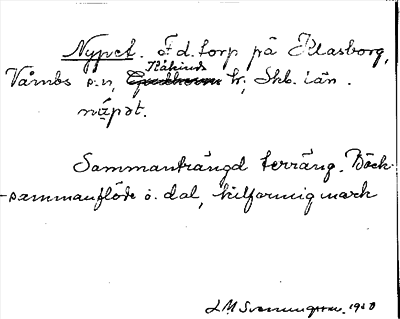 Nypet. F.d. torp på Klasborg,
Kåkinds
Våmbs s:n, Gudhems hr, Skb. län.
nỳpət.
Sammanträngd terräng. Bäck-
sammanflöde o. dal, kilformig mark
J M Svenningsson. 1920